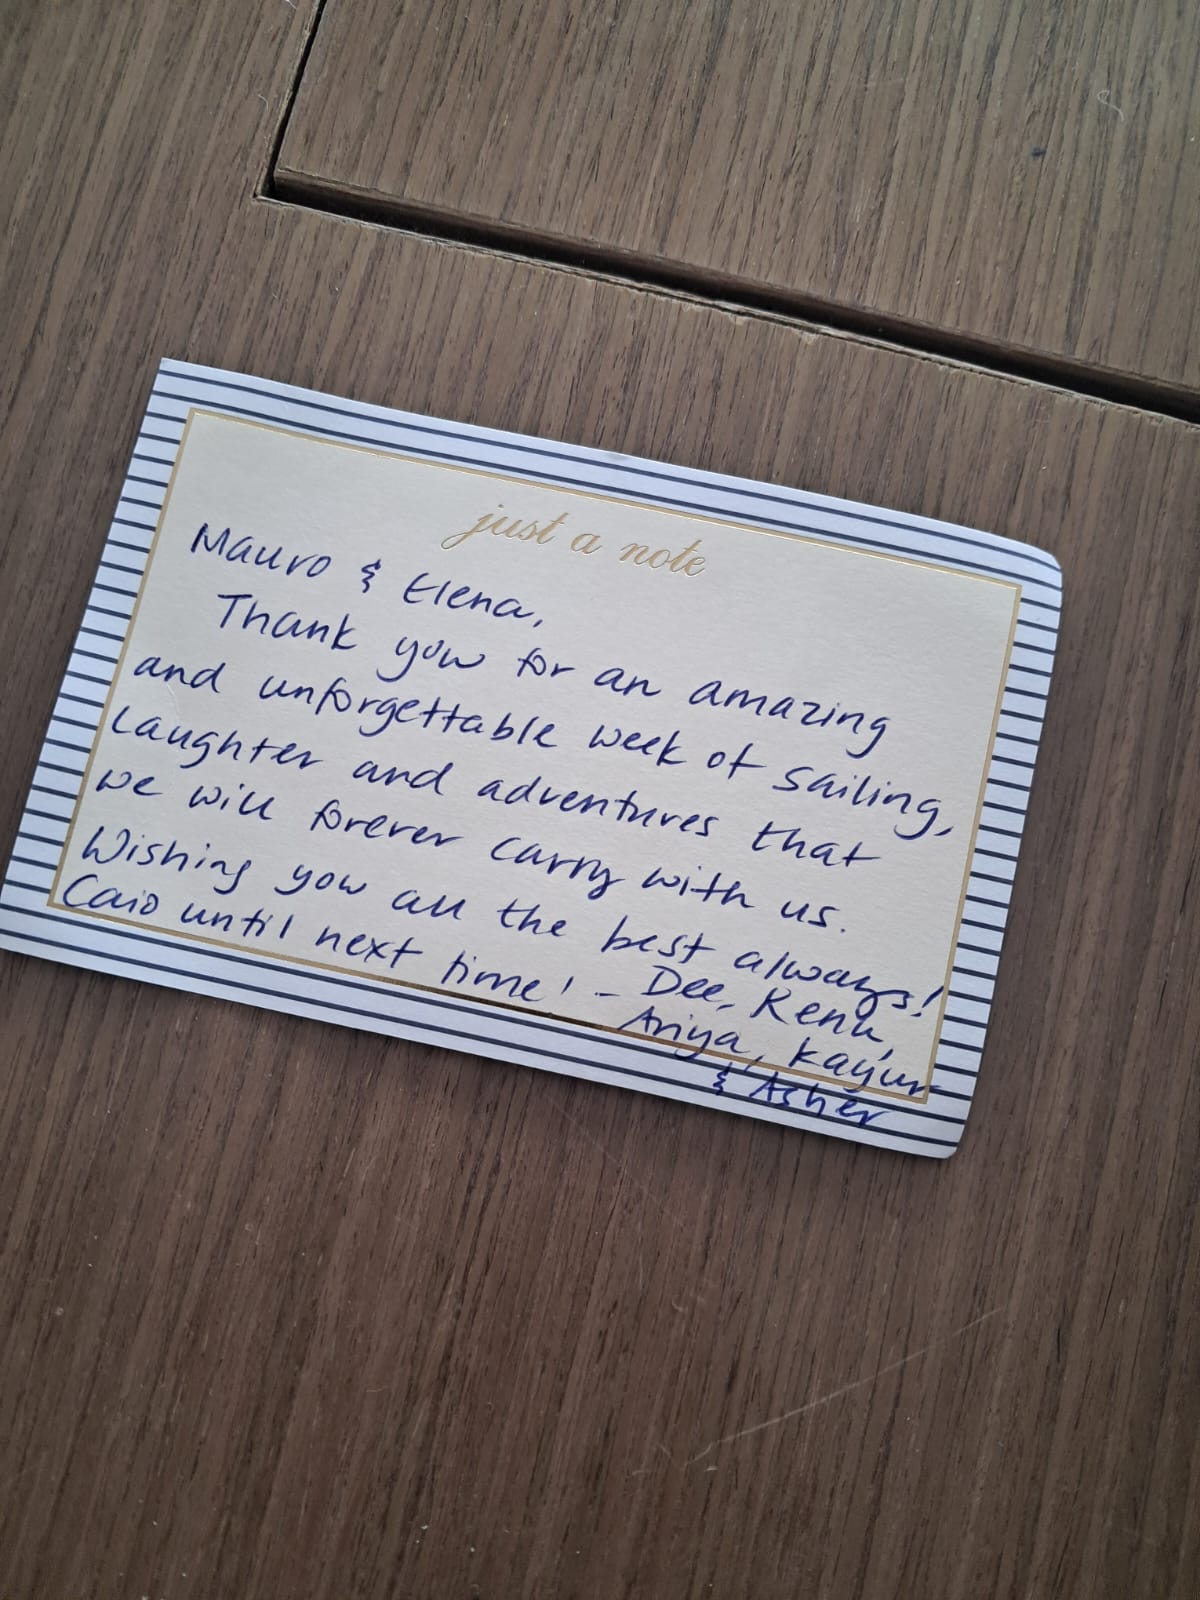 just a note
Mauro & Elena,
Thank you for an amazing
and unforgettable week of sailing,
Laughter and adventures that
we will forever carry with us.
Wishing you all the best always!
Caio until next time! - Dee,
Ariya,
& Asher